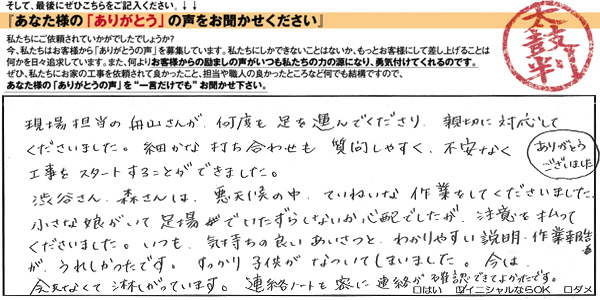 そして、最後にぜひこちらをご記入ください。↓↓↓
『あなた様の「ありがとう」の声をお聞かせください』
私たちにご依頼されていかがでしたでしょうか?
今、私たちはお客様から「ありがとうの声」を募集しています。私たちにしかできないことはないか、もっとお客様にして差し上げることは
何かを日々追求しています。また、何よりお客様からの励ましの声がいつも私たちの力の源になり、勇気付けてくれるのです。
ぜひ、私たちにお家の工事を依頼されて良かったこと、担当や職人の良かったところなど何でも結構ですので、
あなた様の「ありがとうの声」を“一言だけでも”お聞かせ下さい。
太鼓判
現場担当の舟山さんが、何度も足を運んでくださり、親切に対応して
くださいました。細かな打ち合わせも質問しやすく、不安なく
工事をスタートすることができました。
ありがとう
ございました
渋谷さん、森さんは、悪天候の中、ていねいな作業をしてくださいました。
小さな娘がいて足場でいたずらしないか心配でしたが、注意をはらって
くださいました。いつも、気持ちの良いあいさつと、わかりやすい説明・作業報告
が、うれしかったです。すっかり子供がなついてしまいました。今は、
会えなくて淋しがっています。連絡ノートも密に連絡が確認できてよかったです。
□はい ☑イニシャルならOK □ダメ